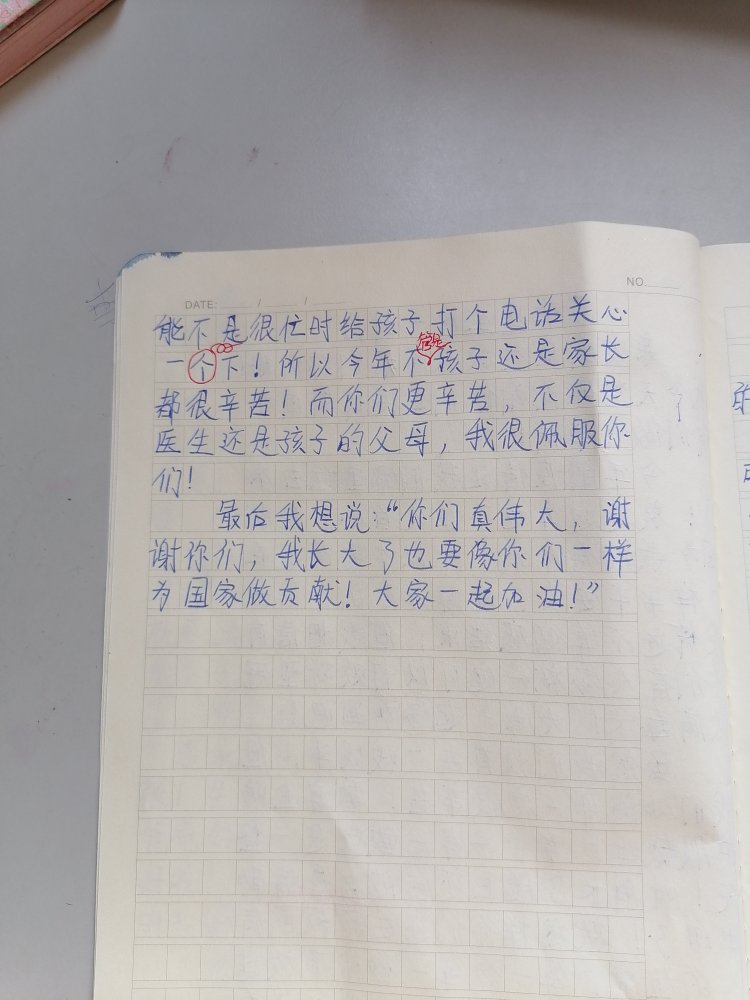 DATE: / /
NO.
能不是很忙时给孩子打个电话关心
一个下！所以今年不管是孩子还是家长
都很辛苦！而你们更辛苦，不仅是
医生还是孩子的父母，我很佩服你
们！
最后我想说：“你们真伟大，谢
谢你们，我长大了也要像你们一样
为国家做贡献！大家一起加油！”